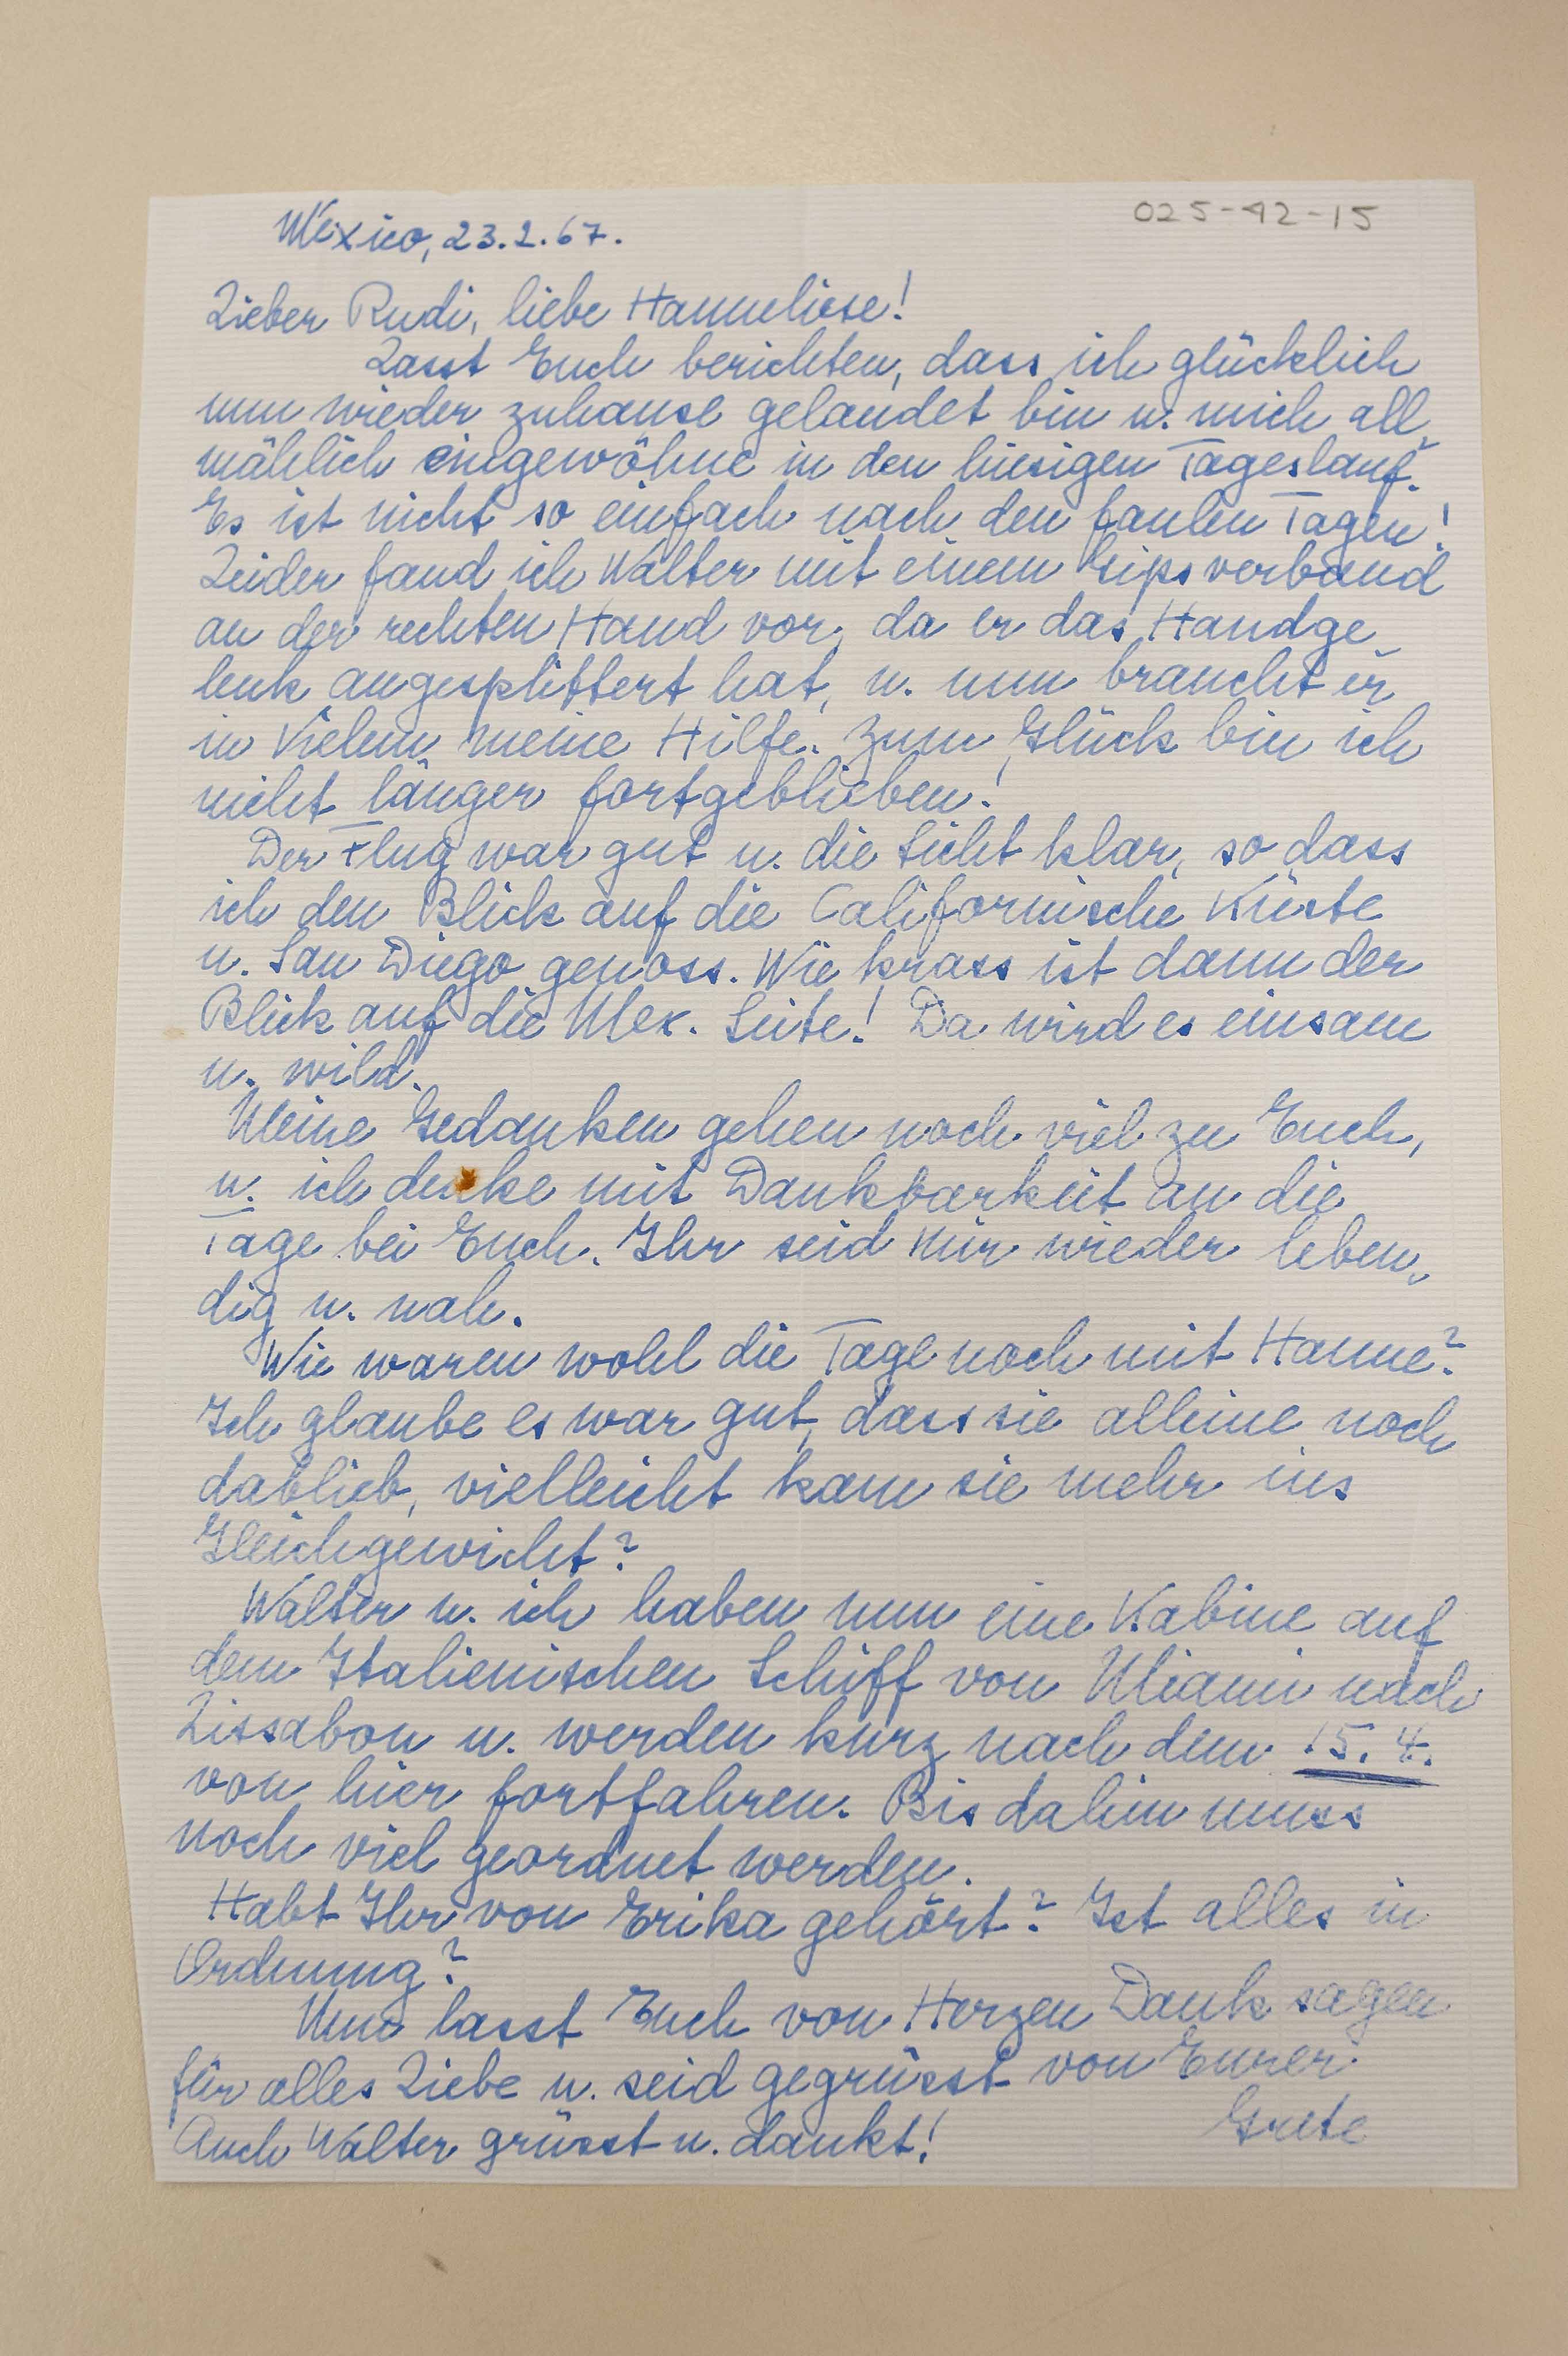 025-42-15
Mexico, 23.2.67.
Lieber Rudi, liebe Hanneliese!
Lasst Euch berichten, dass ich glücklich
nun wieder zuhause gelandet bin u. mich all-
mählich eingewöhne in den hiesigen Tageslauf.
Es ist nicht so einfach nach den faulen Tagen!
Leider fand ich Walter mit einem Gipsverband
an der rechten Hand vor, da er das Handge-
lenk angesplittert hat, u. nun braucht er
in Vielem meine Hilfe. Zum Glück bin ich
nicht länger fortgeblieben!
Der Flug war gut u. die Sicht klar, so dass
ich den Blick auf die Californische Küste
u. San Diego genoss. Wie krass ist dann der
Blick auf die Mex. Seite! Da wird es einsam
u. wild.
Meine Gedanken gehen noch viel zu Euch,
u. ich denke mit Dankbarkeit an die
Tage bei Euch. Ihr seid mir wieder leben-
dig u. nah.
Wie waren wohl die Tage noch mit Hanne?
Ich glaube es war gut, dass sie alleine noch
dablieb, vielleicht kam sie mehr ins
Gleichgewicht?
Walter u. ich haben nun eine Kabine auf
dem Italienischen Schiff von Miami nach
Lissabon u. werden kurz nach dem 15. 4.
von hier fortfahren. Bis dahin muss
noch viel geordnet werden.
Habt Ihr von Erika gehört? Ist alles in
Ordnung?
Nun lasst Euch von Herzen Dank sagen
für alles Liebe u. seid gegrüsst von Eurer
Grete
Auch Walter grüsst u. dankt!